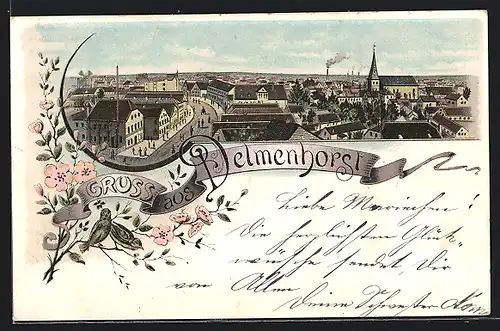 GRUSS aus Delmenhorst
Liebe Mariechen!
Die herzlichsten Glück-
wünsche sendet, Dir
von Allen
Deine Schwester